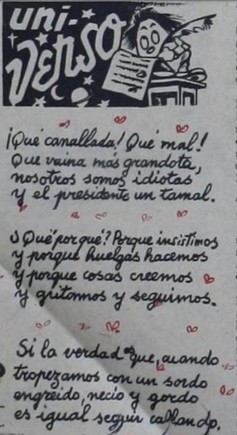 uni-
verso
¡Qué canallada! Qué mal!
Que vaina más grandota,
nosotros somos idiotas
y el presidente un tamal.
¿Qué por qué? Porque insistimos
y porque huelgas hacemos
y porque cosas creemos
y gritamos y seguimos.
Si la verdad que, cuando
tropezamos con un sordo
engreído, necio y gordo
es igual seguir callando.